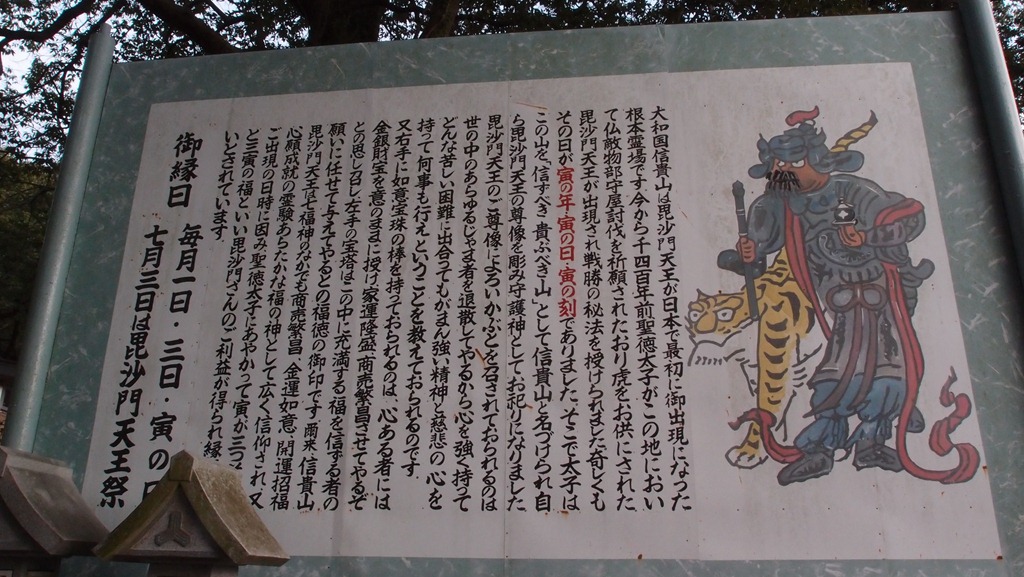 大和国信貴山は毘沙門天王が日本で最初に御出現になった
根本霊場です、今から千四百年前聖徳太子がこの地におい
て仏敵物部守屋討伐を祈願されたおり虎をお供にされた
毘沙門天王が出現され戦勝の秘法を授けられました奇しくも
その日が寅の年・寅の日・寅の刻でありました、そこで太子は
この山を、「信ずべき貴ぶべき山」として信貴山と名づけられ自
ら毘沙門天王の尊像を彫み守護神としてお祀りになりました
毘沙門天王のご尊像によろいかぶとを召されておられるのは
世の中のあらゆるじゃま者を退散してやるから心を強く持って
どんな苦しい困難に出合ってもがまん強い精神と慈悲の心を
持って何事も行えということを教えておられるのです、
又右手に如意宝珠の棒を持っておられるのは、心ある者には
金銀財宝を意のままに授け家運隆盛、商売繁昌させてやるぞ
との思し召し左手の宝塔はこの中に充満する福を信ずる者の
願いに任せて与えてやるとの福徳の御印です爾来、信貴山
毘沙門天王は七福神のなかでも商売繁昌、金運如意、開運招福
心願成就の霊験あらたかな福の神として広く信仰され、又
ご出現の日時に因み聖徳太子にあやかって寅が三つ
と三寅の福といい毘沙門さんのご利益が得られる縁
いとされています。
御縁日 毎月一日・三日・寅の日
七月三日は毘沙門天王祭